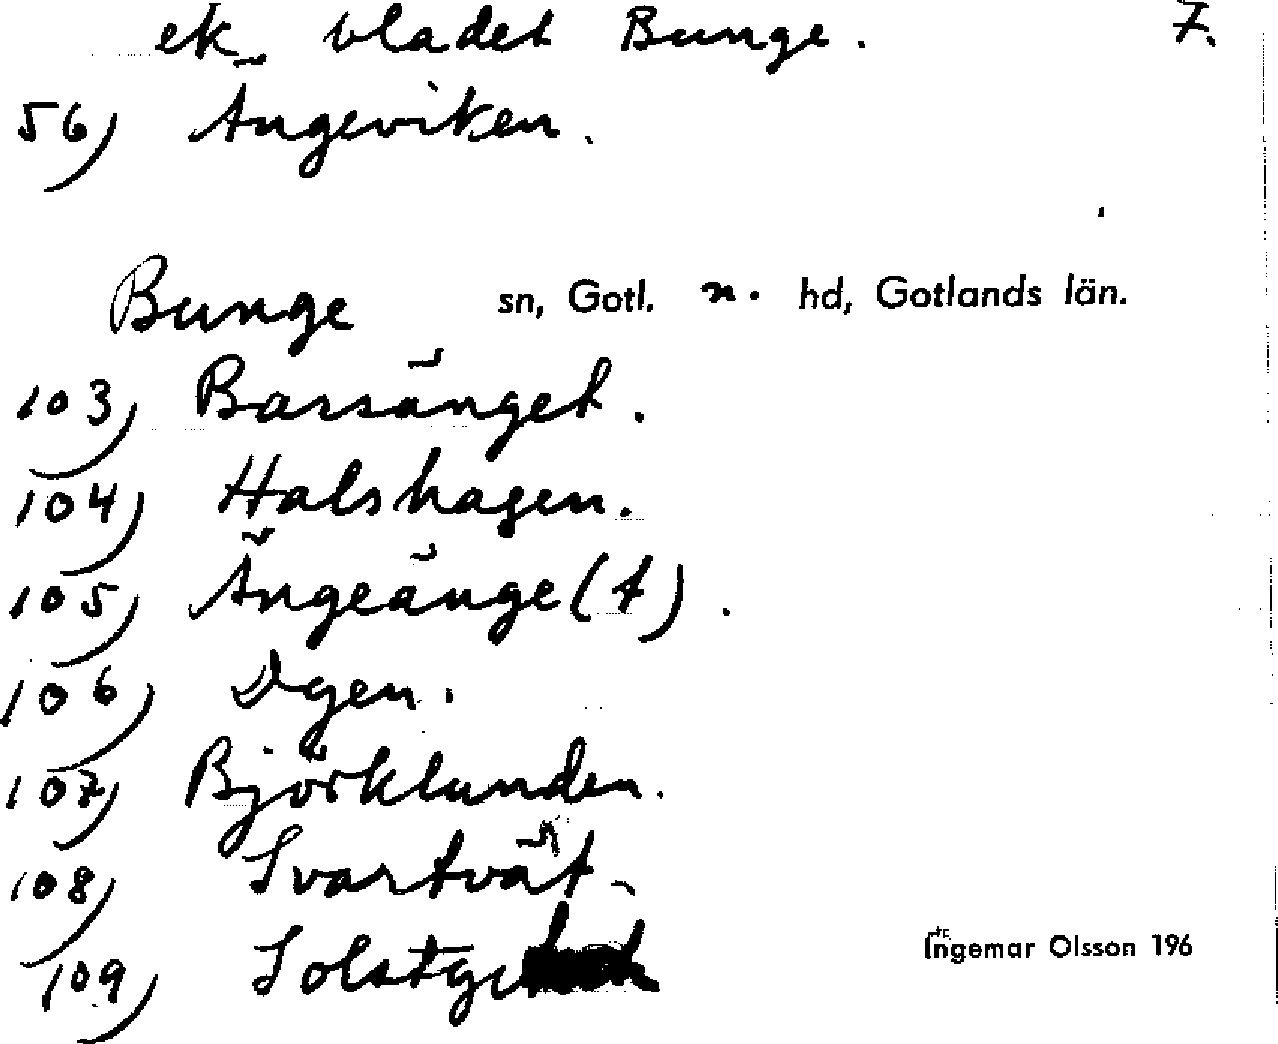 ek. bladet Bunge. 7.
56) Ängeviken.
Bunge sn, Gotl. n. hd, Gotlands län.
103) Barsänget.
104) Halshagen.
105) Ängeänge(t).
106) Ogen.
107) Björklunden.
108) Svartvät.
109)
Ingemar Olsson 196